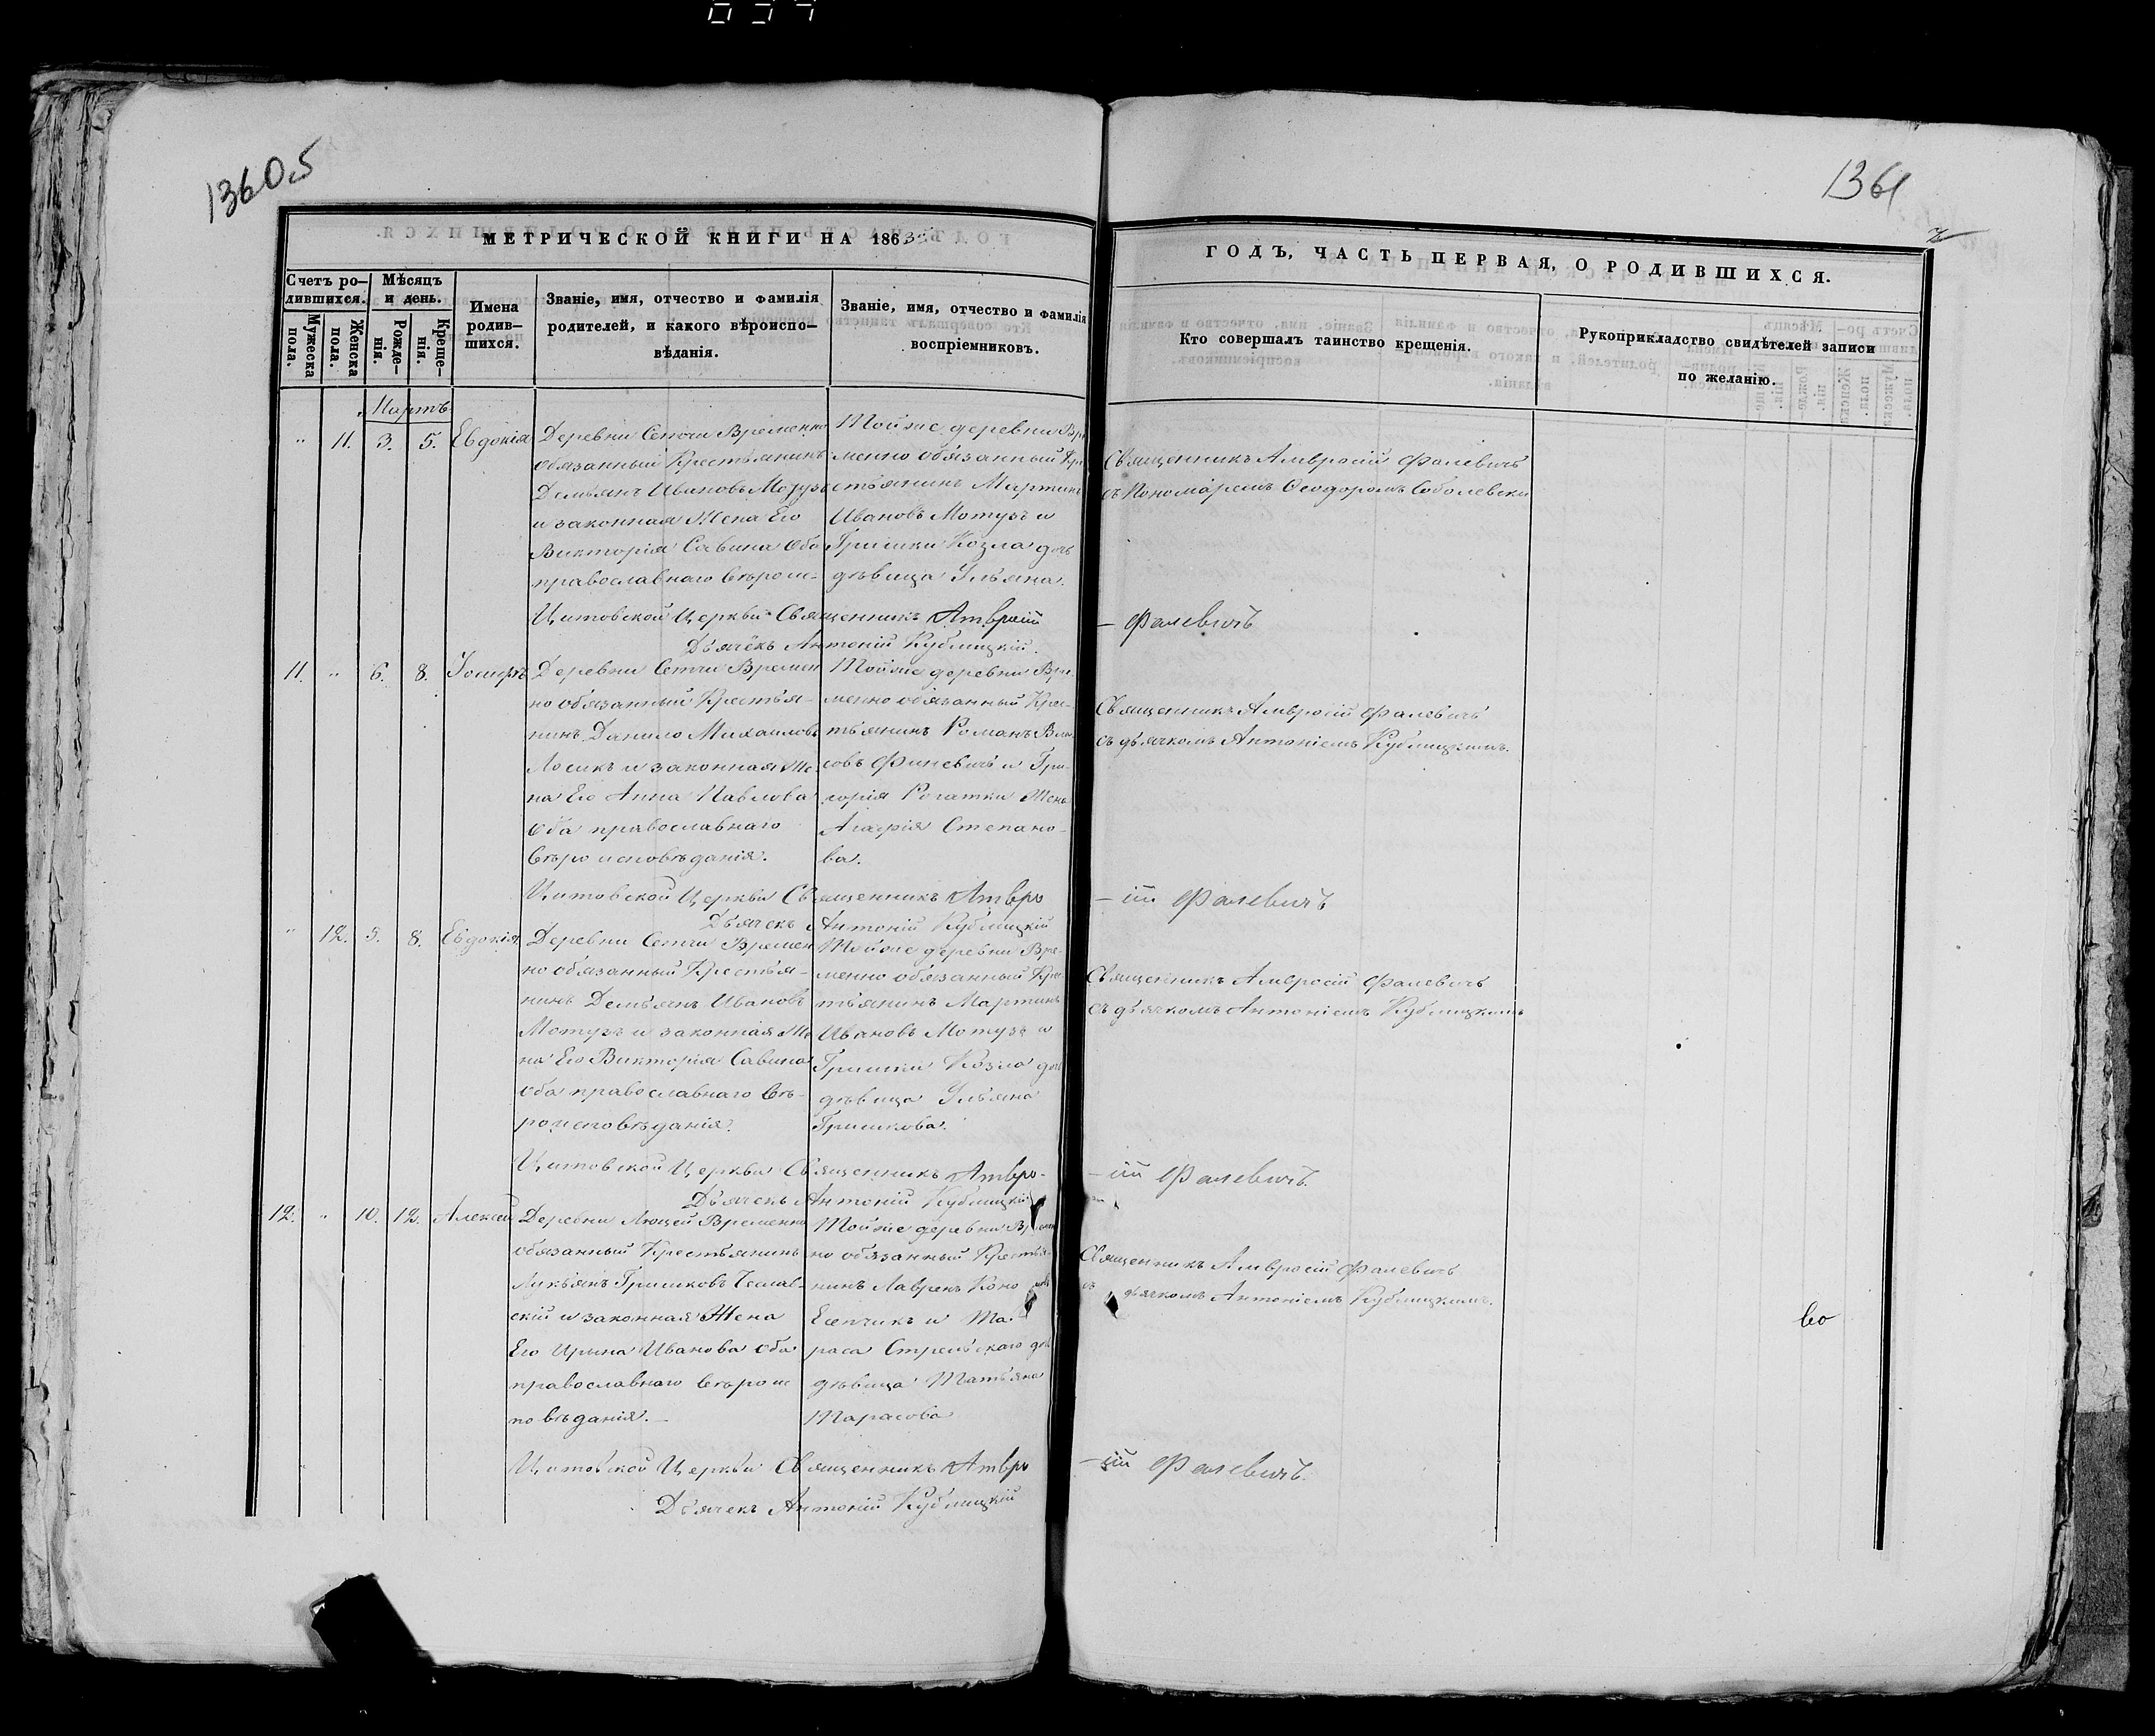 1360.5
1361
МЕТРИЧЕСКОЙ КНИГИ НА 1863
ГОДЪ, ЧАСТЬ ПЕРВАЯ, О РОДИВШИХСЯ.
Счетъ ро-
дившихся.
Мужеска
пола.
Женска
пола.
Мѣсяцъ
и день.
Рожде-
нія.
Креще-
нія.
Имена
родив-
шихся.
Званіе, имя, отчество и фамилія
родителей, и какого вѣроиспо-
вѣданія.
Званіе, имя, отчество и фамилія
воспріемниковъ.
Кто совершалъ таинство крещенія.
Рукоприкладство свидѣтелей записи
по желанію.
Мартъ
" 11. 3. 5. Евдокія
Деревни Сетчи Временно
обязанный Крестьянинъ
Демьянъ Ивановъ Мотузъ
и законная Жена Его
Викторія Савина Оба
православнаго вѣрои-
Тойже деревни Вре
менно обязанный Кре
стьянинъ Мартинъ
Ивановъ Мотузъ и
Гришки Козла дочь
дѣвица Ульяна.
Священникъ Амвросій Фалевичъ
съ Пономаремъ Ѳеодоромъ Соболевски
Цитовской Церкви Священникъ Амвросій
– Фалевичъ
Дьячекъ Антоній Кублицкій.
11. " 6. 8. Іосифъ
Деревни Сетчи Времен
но обязанный Крестья-
нинъ Данило Михаиловъ
Лосикъ и законная Же-
на Его Анна Павлова
Оба православнаго
вѣроисповѣданія.
Тойже деревни Вре-
менно обязанный Крес-
тьянинъ Романъ Вла-
совъ Финевичъ и Гри-
горія Рогатки Жена
Агафія Степано-
ва.
Священникъ Амвросій Фалевичъ
съ дьячкомъ Антоніемъ Кублицкимъ.
Цитовской Церкви Священникъ Амвро
– ій Фалевичъ
Дьячекъ Антоній Кублицкій
" 12. 5. 8. Евдокія.
Деревни Сетчи Времен
но обязанный Крестья-
нинъ Демьянъ Ивановъ
Мотузъ и законная Же
на Его Викторія Савина
оба православнаго вѣ-
роисповѣданія.
Тойже деревни Вре-
менно обязанный Крес
тьянинъ Мартинъ
Ивановъ Мотузъ и
Гришки Козла дочь
дѣвица Ульяна
Гришкова.
Священникъ Амвросій Фалевичъ
съ дьячкомъ Антоніемъ Кублицкимъ
Цитовской Церкви Священникъ Амвро-
– ій Фалевичъ.
Дьячекъ Антоній Кублицкій
12. " 10. 12. Алексій
Деревни Временно
обязанный Крестьянинъ
Лукьянъ Гришковъ
скій и законная Жена
Его Ирина Иванова Оба
православнаго вѣрои
повѣданія. –
Тойже деревни Времен
но обязанный Крестья-
нинъ Лавренъ
и Та-
раса дочь
дѣвица Татьяна
Тарасова
Священникъ Амвросій Фалевичъ
съ дьячкомъ Антоніемъ Кублицкимъ.
во
Цитовской Церкви Священникъ Амвро
– сій Фалевичъ.
Дьячекъ Антоній Кублицкій